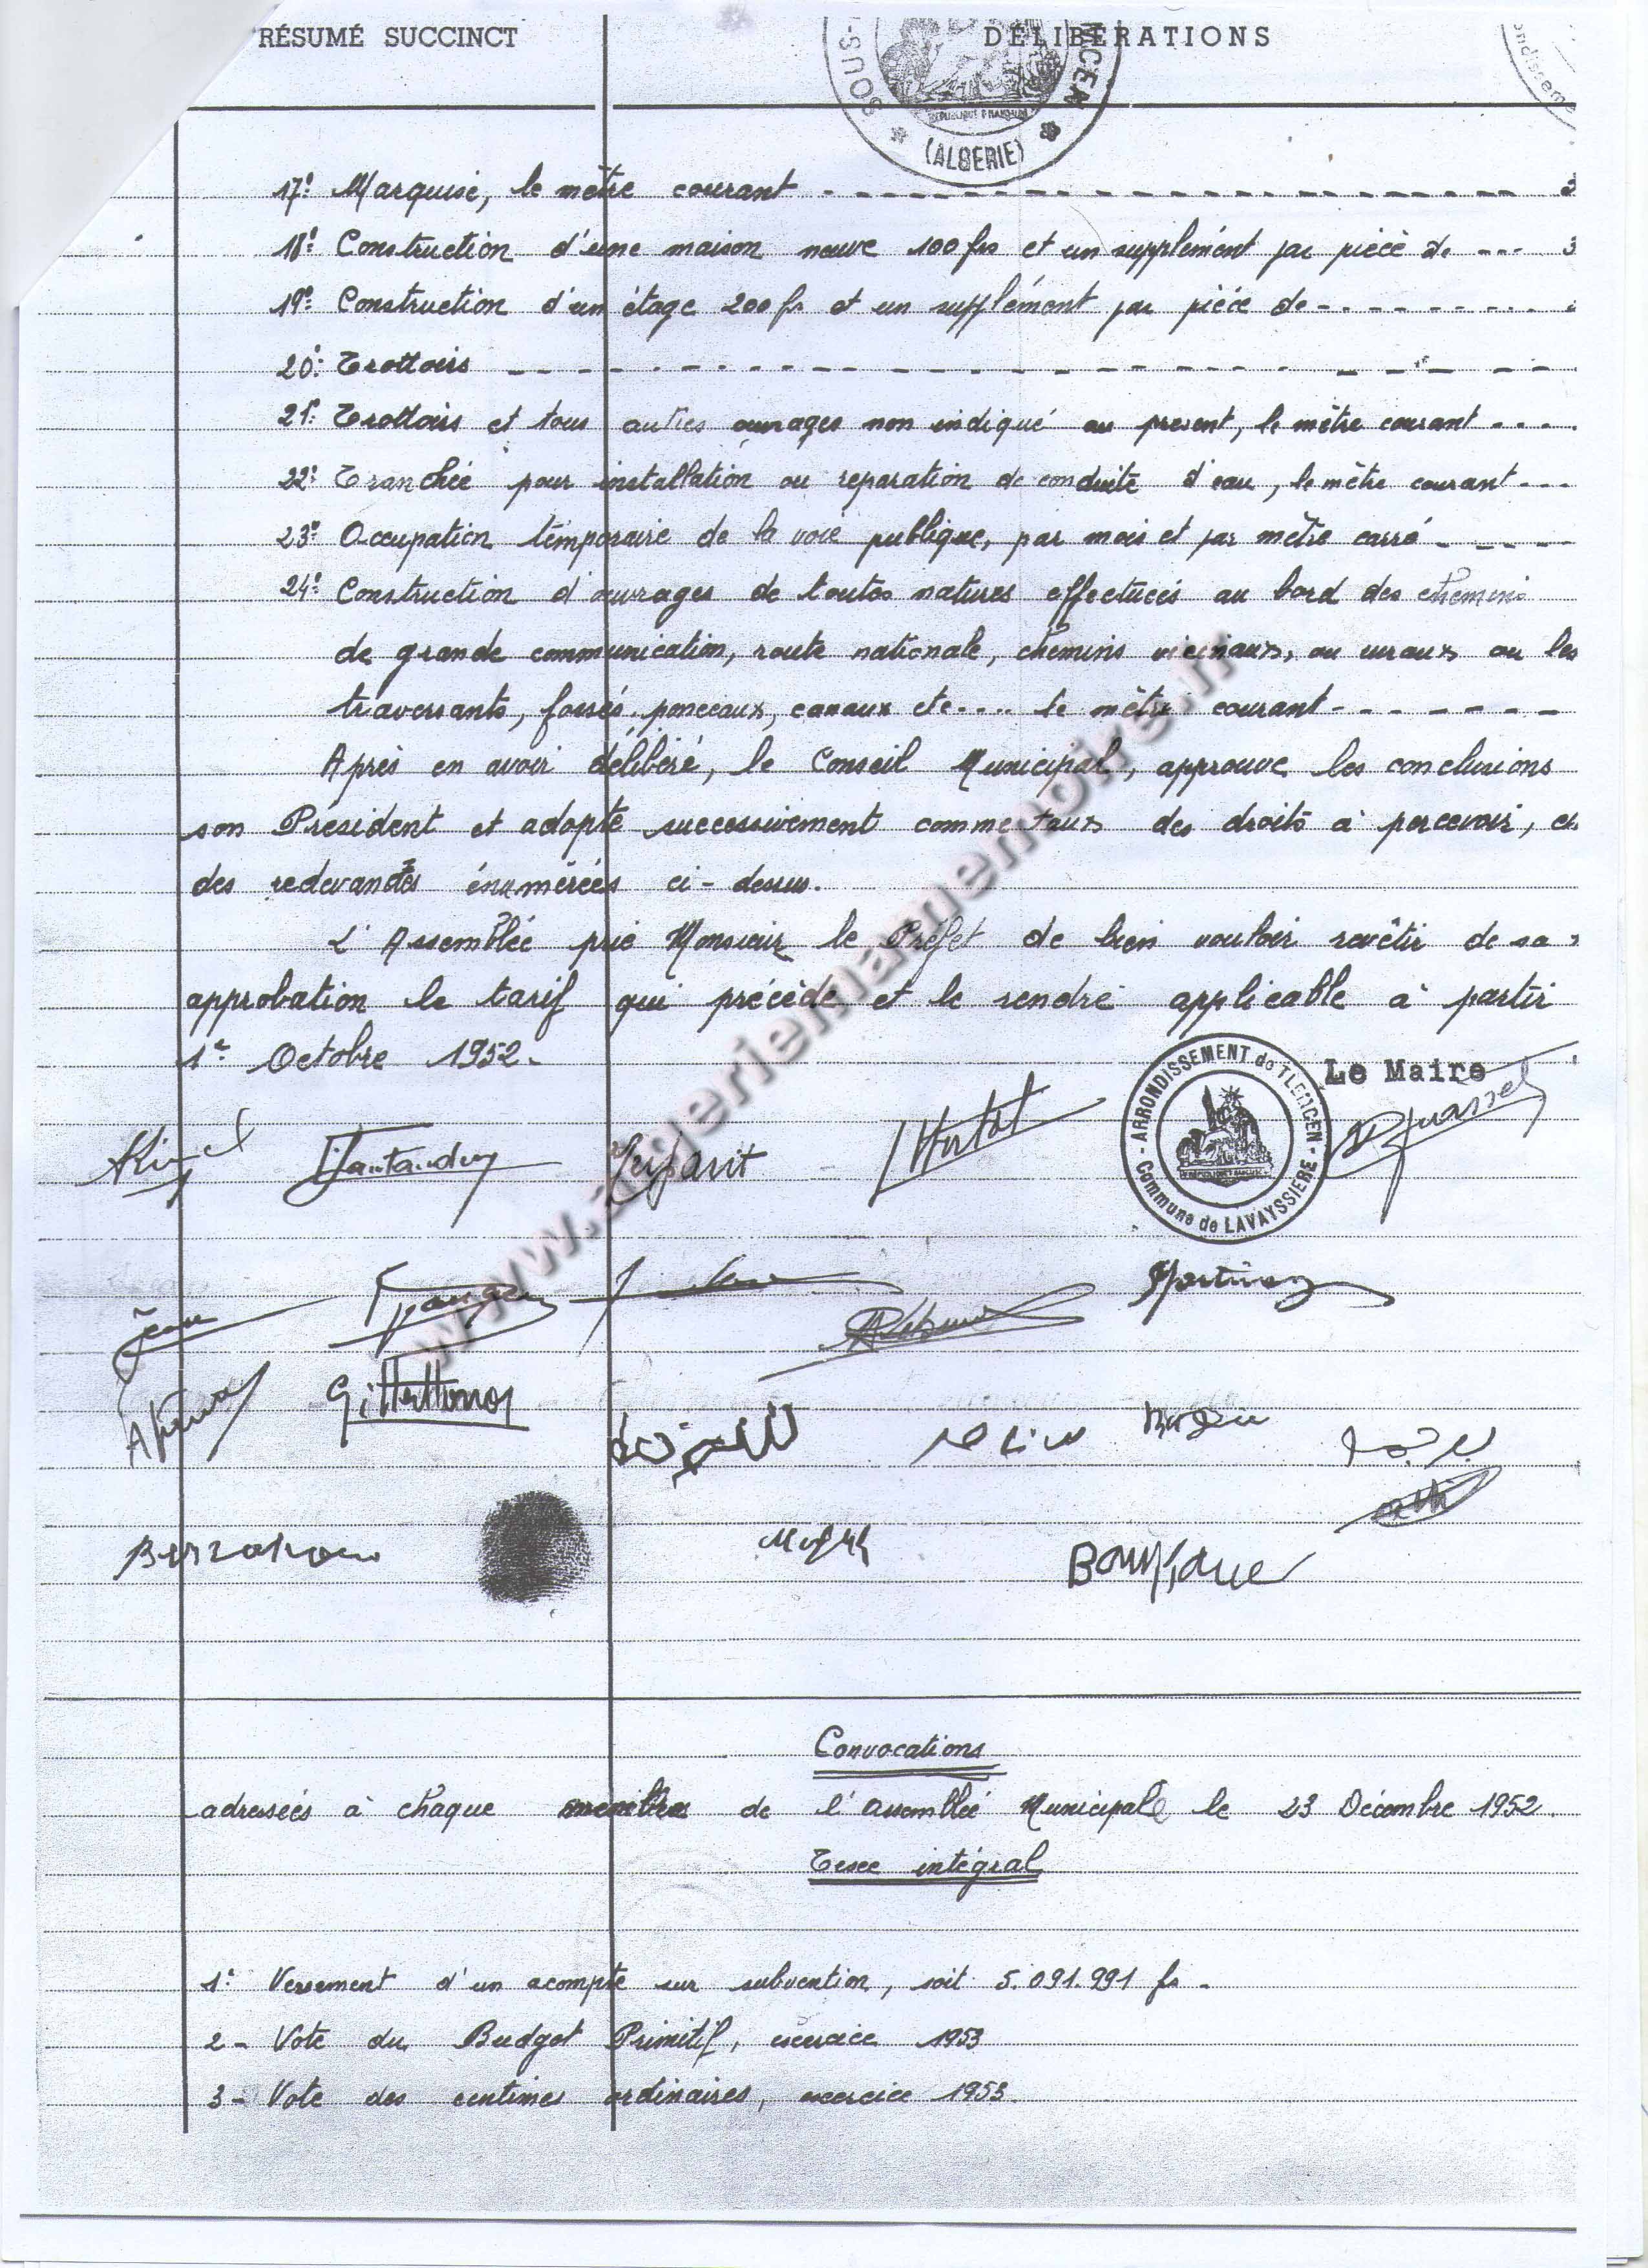 RÉSUMÉ SUCCINCT
DÉLIBÉRATIONS
SOUS-
MCEN
REPUBLIQUE FRANÇAISE
(ALGERIE)
ondisseme
17° Marquise, le mètre courant - - - 3
18° Construction d'une maison neuve 100 frs et un supplément par pièce de - - - 3
19° Construction d'un étage 200 fs et un supplément par pièce de - - -
20° Trottoirs - - -
21° Trottoirs et tous autres ouvrages non indiqué au present, le mètre courant - - - .
22° Tranchée pour installation ou reparation de conduite d'eau, le mètre courant - - -
23° Occupation temporaire de la voie publique, par mois et par mètre carré - - - -
24° Construction d'ouvrages de toutes natures effectuées au bord des chemins
de grande communication, route nationale, chemins vicinaux, ou ruraux ou les
traversants, fossés, ponceaux, canaux etc.... le mètre courant - - - - - - -
Après en avoir délibéré, le Conseil Municipal, approuve les conclusions
son Président et adopte successivement comme taux des droits à percevoir, et
des redevances énumérées ci-dessus.
L'Assemblée prie Monsieur le Préfet de bien vouloir revêtir de sa
approbation le tarif qui précède et le rendre applicable à partir
1er Octobre 1952.
Le Maire
ARRONDISSEMENT de TLEMCEN
Commune de LAVAYSSIERE
Martinez
www.algeriemamemoire.fr
Convocations
adressées à chaque membre de l'assemblée Municipale le 23 Décembre 1952.
intégral
1° Versement d'un acompte sur subvention, soit 5.091.991 fs -
2 - Vote du Budget Primitif, exercice 1953
3 - Vote des centimes ordinaires, exercice 1953.